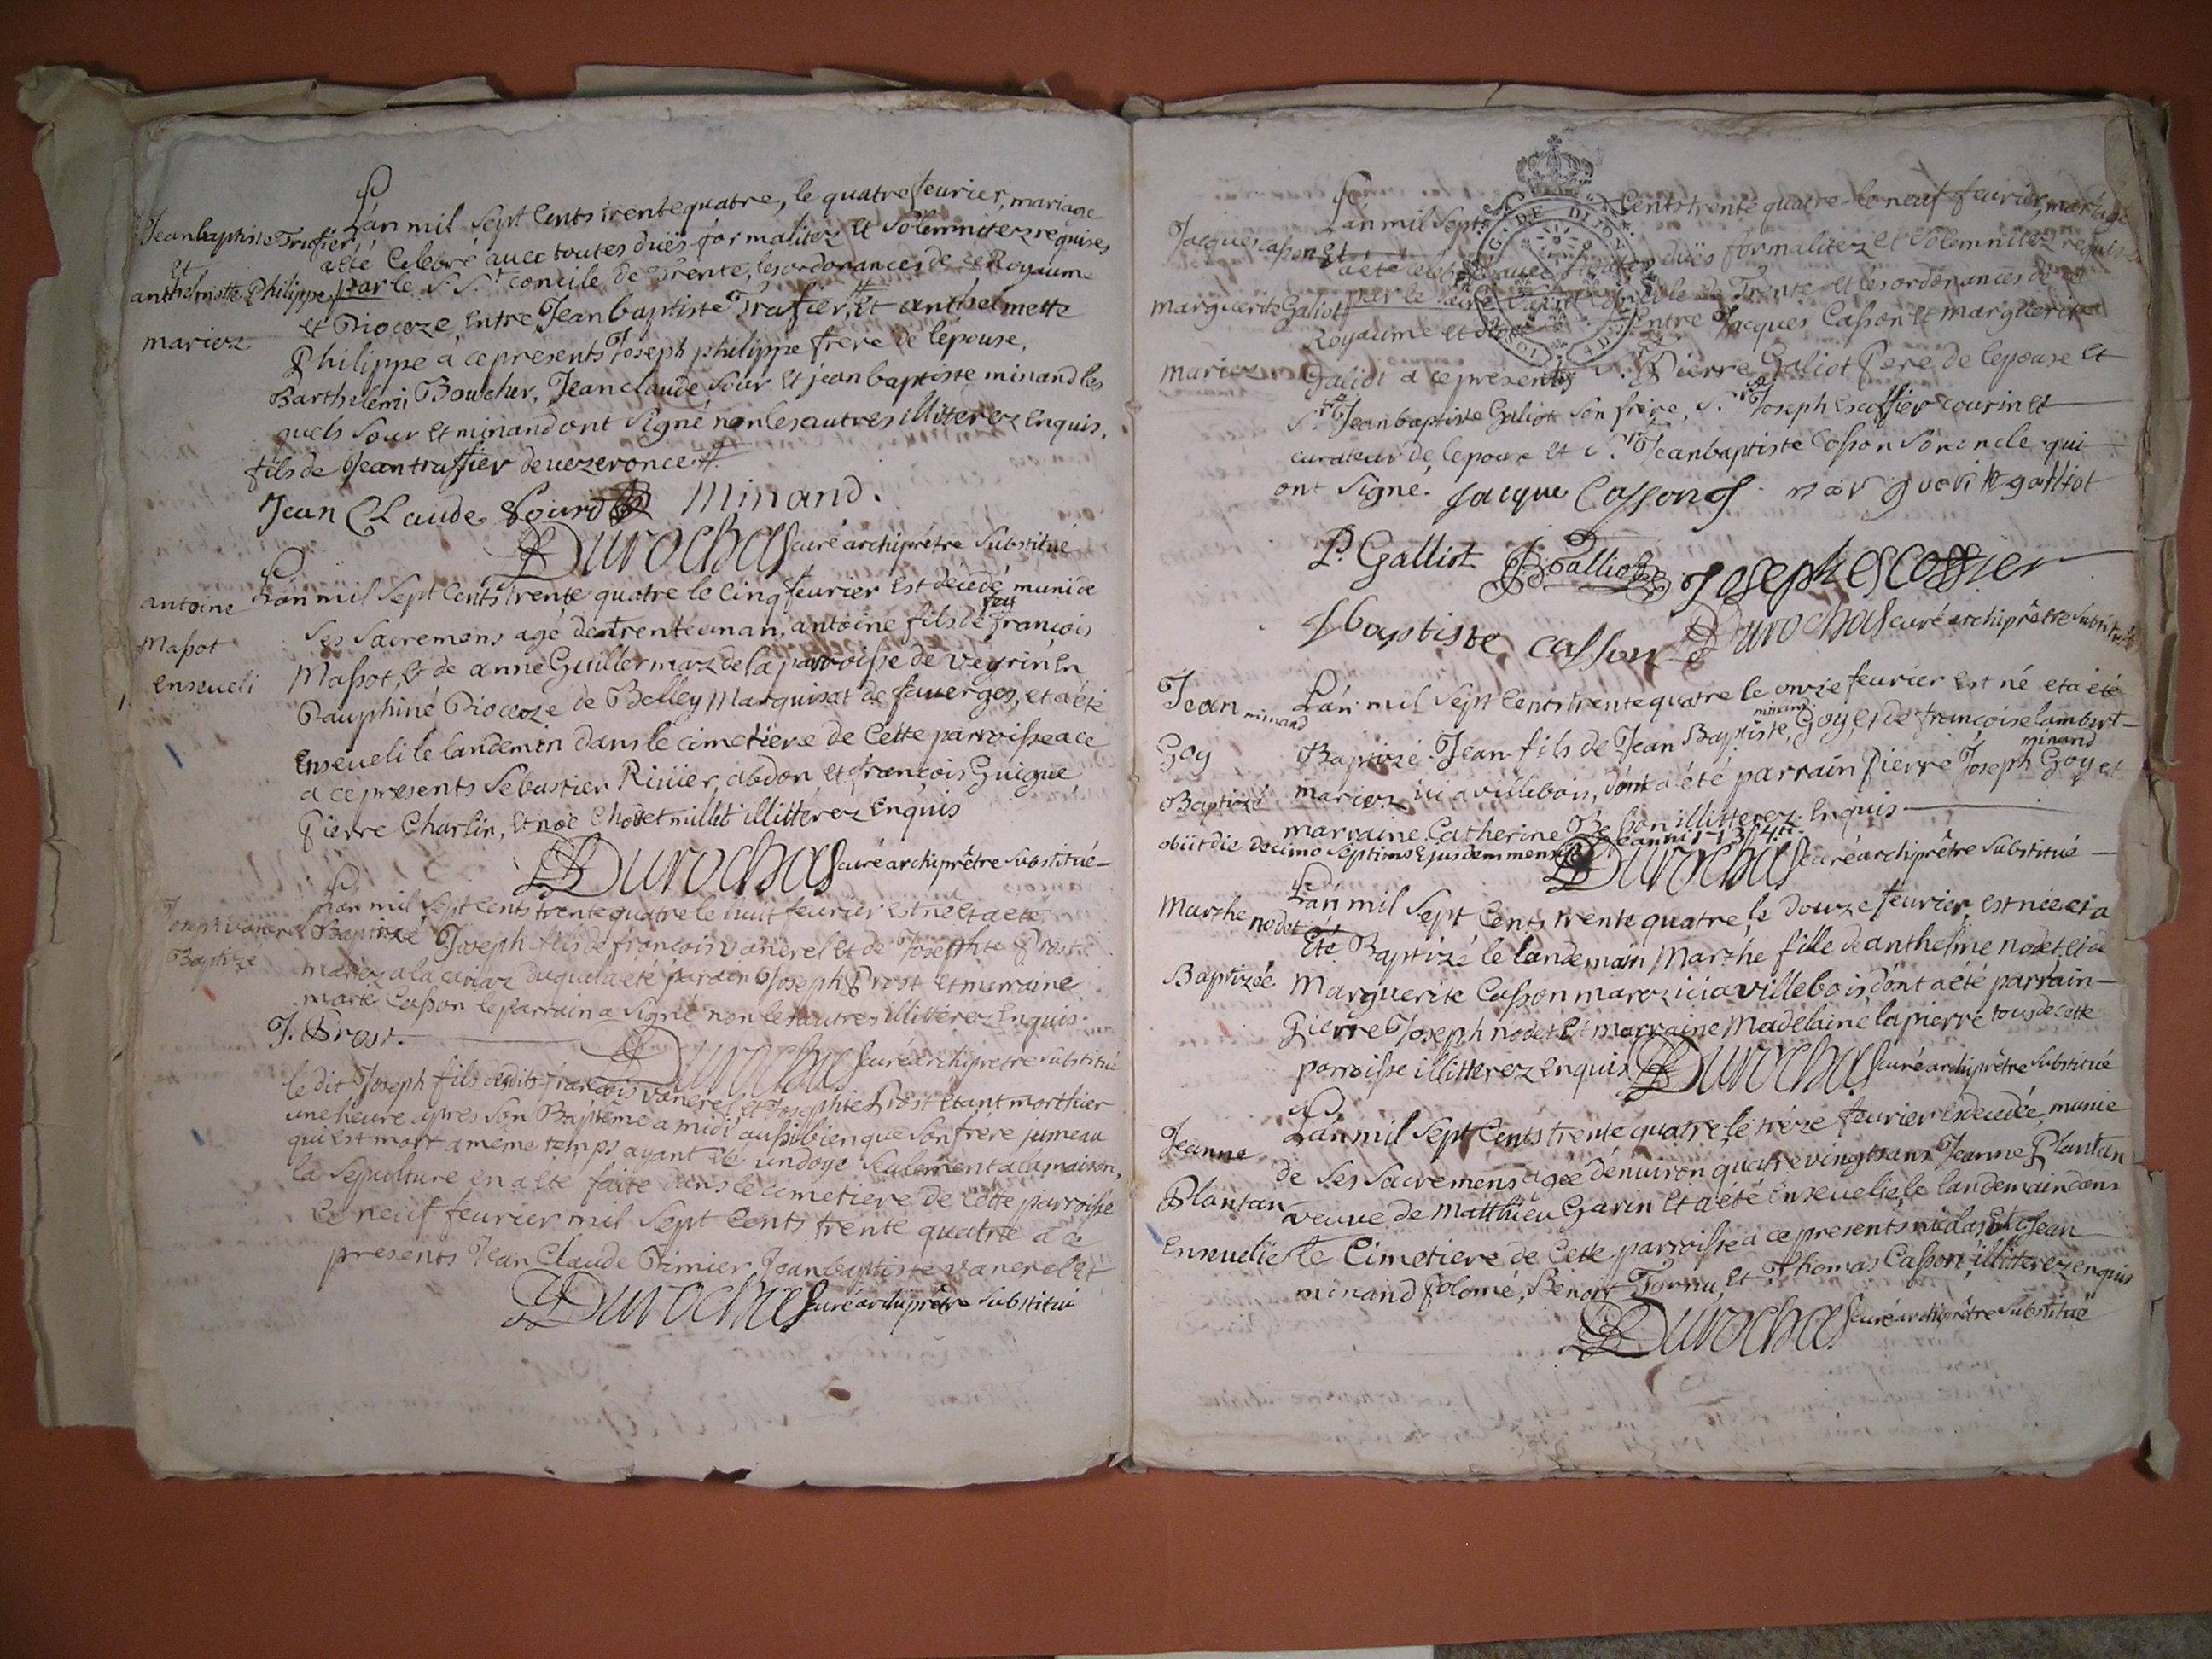 L'an mil sept cents trente quatre, le quatre feurier, mariage
Jean baptiste Trafier
a été Celebré auec toutes duës formalitez et Solemnitez requises
et
anthelmette Philippe
par le S. S.t concile de Trente, les ordonances de ce Royaume
et Dioceze, Entre Jean baptiste Trafier, # Et anthelmette
mariez
Philippe à ce presents Joseph philippe frere de lepouse,
Barthelemi Boucher, Jean claude Sour et jean baptiste minand les
quels Sour et minand ont Signé non les autres illitterez Enquis,
fils de Jean traffier de uezeronce #
Jean CLaude Sourd Minand.
Durochas curé archiprêtre Substitué
L'an mil Sept Cents trente quatre le Cinq feurier Est décedé muni de
antoine
feu
Ses Sacremens agé de trente un an, antoine fils de françois
Massot
Massot, et de anne Guillermaz de la parroisse de Veyrin En
enseueli
Dauphiné Dioceze de Belley Marquisat de fauerges, et a été
Enseueli le landemin dans le cimetiere de Cette parroisse a ce
a ce presents Sebastien Riuier, abdon et françois Guigue,
Pierre Charlin, Et noé Chodet millet illitterez Enquis
Durochas curé archiprêtre Substitué
L'an mil Sept Cents trente quatre le huit feurier est né et a été
Joseph vanerel
Baptizé Joseph fils de françois vanerel et de Josephte Prost
Baptize
mariez a la duquel a été parain Joseph Prost et marraine
marie Casson le parrain a Signé non les autres illitterez Enquis
J. Prost.
Durochas curé archiprêtre Substitué
le dit Joseph fils desdits françois vanerel et Josephte Prost Etant mort hier
une heure apres Son Baptême a midi aussi bien que Son frere jumeau
qui Est mort a meme temps ayant été undoyé Seulement a la maison,
la Sepulture en a été faite dans le cimetiere de Cette parroisse
Le neuf feurier mil Sept Cents trente quatre a ce
presents Jean Claude Jean baptiste vanerel Et
Durochas curé archiprêtre Substitué
G. DE DIJON
L'an mil Sept Cents trente quatre le neuf feurier, mariage
Jacques Casson et
a été celebré auec toutes duës formalitez et Solemnitez requises
marguerite Galiot
par le Sacré Saint Concile de Trente et les ordonances de ce
Royaume et Entre Jacques Casson Et marguerite
mariez
Galiot a ce presents S.r Pierre Galiot Pere de lepouse et
S.r Jean baptiste Galiot Son frere, S.r Joseph Escoffier cousin et
curateur de lepoux et S.r Jean baptiste Casson Son oncle qui
ont Signé. Jacque Casson margueritte galliot
P. Galliot JB Galliot Joseph Escoffier
J baptiste casson Durochas curé archiprêtre Substitué
Jean minand
L'an mil Sept Cents trente quatre le onze feurier est né et a été
minand
Goy
Baptizé Jean fils de Jean Baptiste Goy, et de françoise lambert
minand
Baptizé
mariez ici a villebois, dont a été parrain Pierre Joseph Goy et
marraine Catherine illitterez Enquis
obiit die decimo septimo Ejusdem mensis anni 1734
Durochas curé archiprêtre Substitué
L'an mil Sept Cents trente quatre, le douze feurier, est née et a
Marthe nodet
Eté Baptizé le landemain Marthe fille de anthelme nodet et de
Baptizée
Marguerite Casson mariez ici a villebois dont a été parrain
Pierre Joseph nodet Et marraine Madelaine lapierre tous de cette
parroisse illitterez Enquis Durochas curé archiprêtre Substitué
L'an mil Sept Cents trente quatre le treze feurier Est decedée, munie
Jeanne
de Ses Sacremens agée denuiron quatre vingts ans Jeanne Plantan
Plantan
veuve de Matthieu Garin Et a été Enseuelie, le landemain dans
Enseuelie
le Cimetiere de Cette parroisse a ce presents nicolas Et Jean
minand Benoit Tornu, et Thomas Casson, illitterez enquis
Durochas curé archiprêtre Substitué